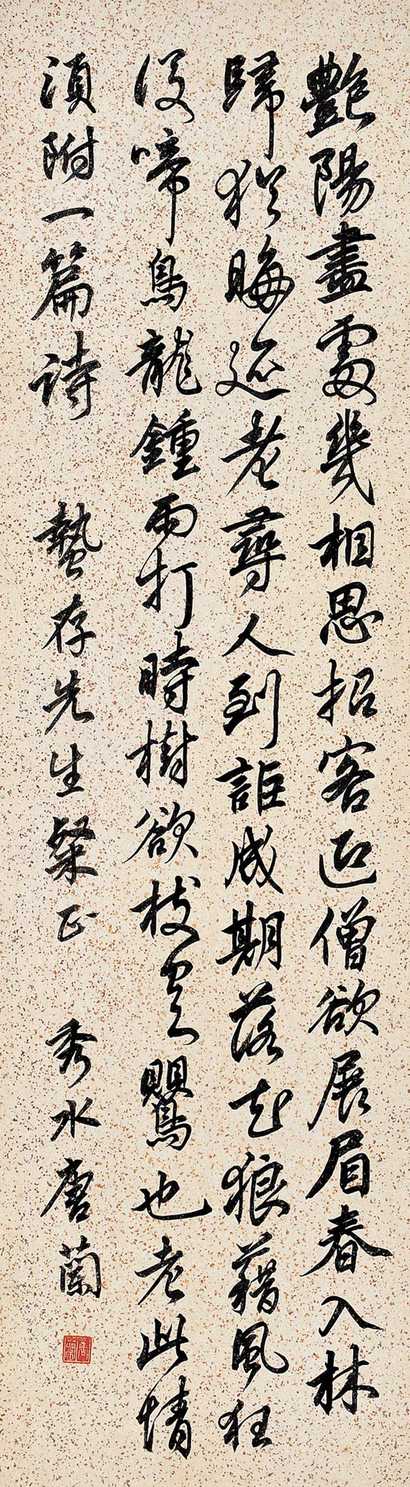 艷陽盡處幾相思招客迎僧欲展眉春入林
歸猶晦迹老尋人到詎成期落花狼藉風狂
後啼鳥龍鍾雨打時樹欲枝空鸎也老此情
須附一篇詩 蟄存先生粲正 秀水唐蘭